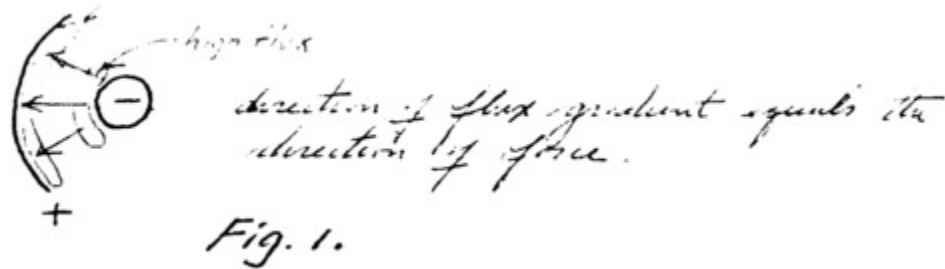 high flux
−
direction of flux gradient equals the
direction of force.
+
Fig. 1.